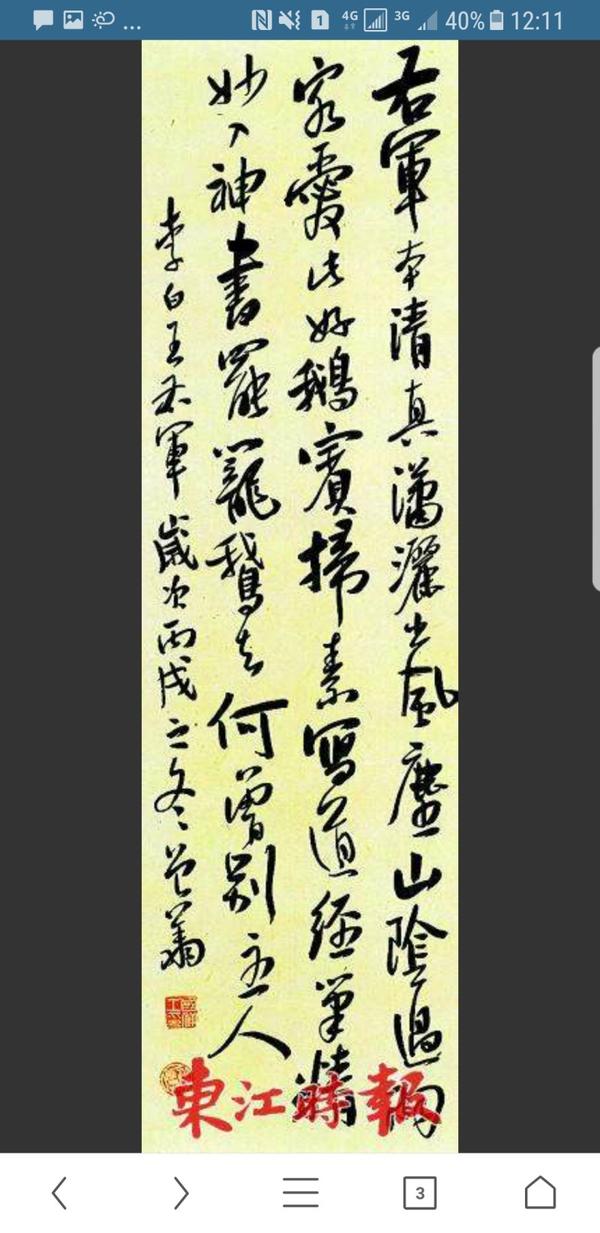 1 4G 3G 40% 12:11
右軍本清真瀟灑出風塵山陰過羽
客愛此好鵝賓掃素寫道經筆精
妙入神書罷籠鵝去何曾別主人
李白王右軍歲次丙戌之冬
東江時報
3